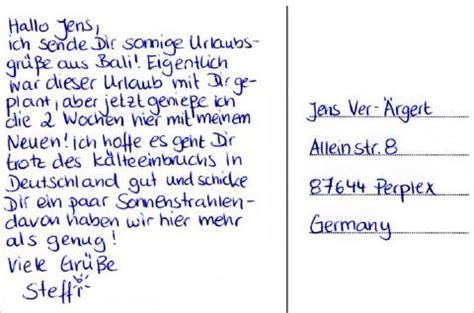 Hallo Jens,
ich sende Dir sonnige Urlaubs-
grüße aus Bali! Eigentlich
war dieser Urlaub mit Dir ge-
plant, aber jetzt genieße ich
die 2 Wochen hier mit meinem
Neuen! Ich hoffe es geht Dir
trotz des Kälteeinbruchs in
Deutschland gut und schicke
Dir ein paar Sonnenstrahlen-
davon haben wir hier mehr
als genug!
Viele Grüße
Steffi
Jens Ver-Ärgert
Alleinstr. 8
87644 Perplex
Germany